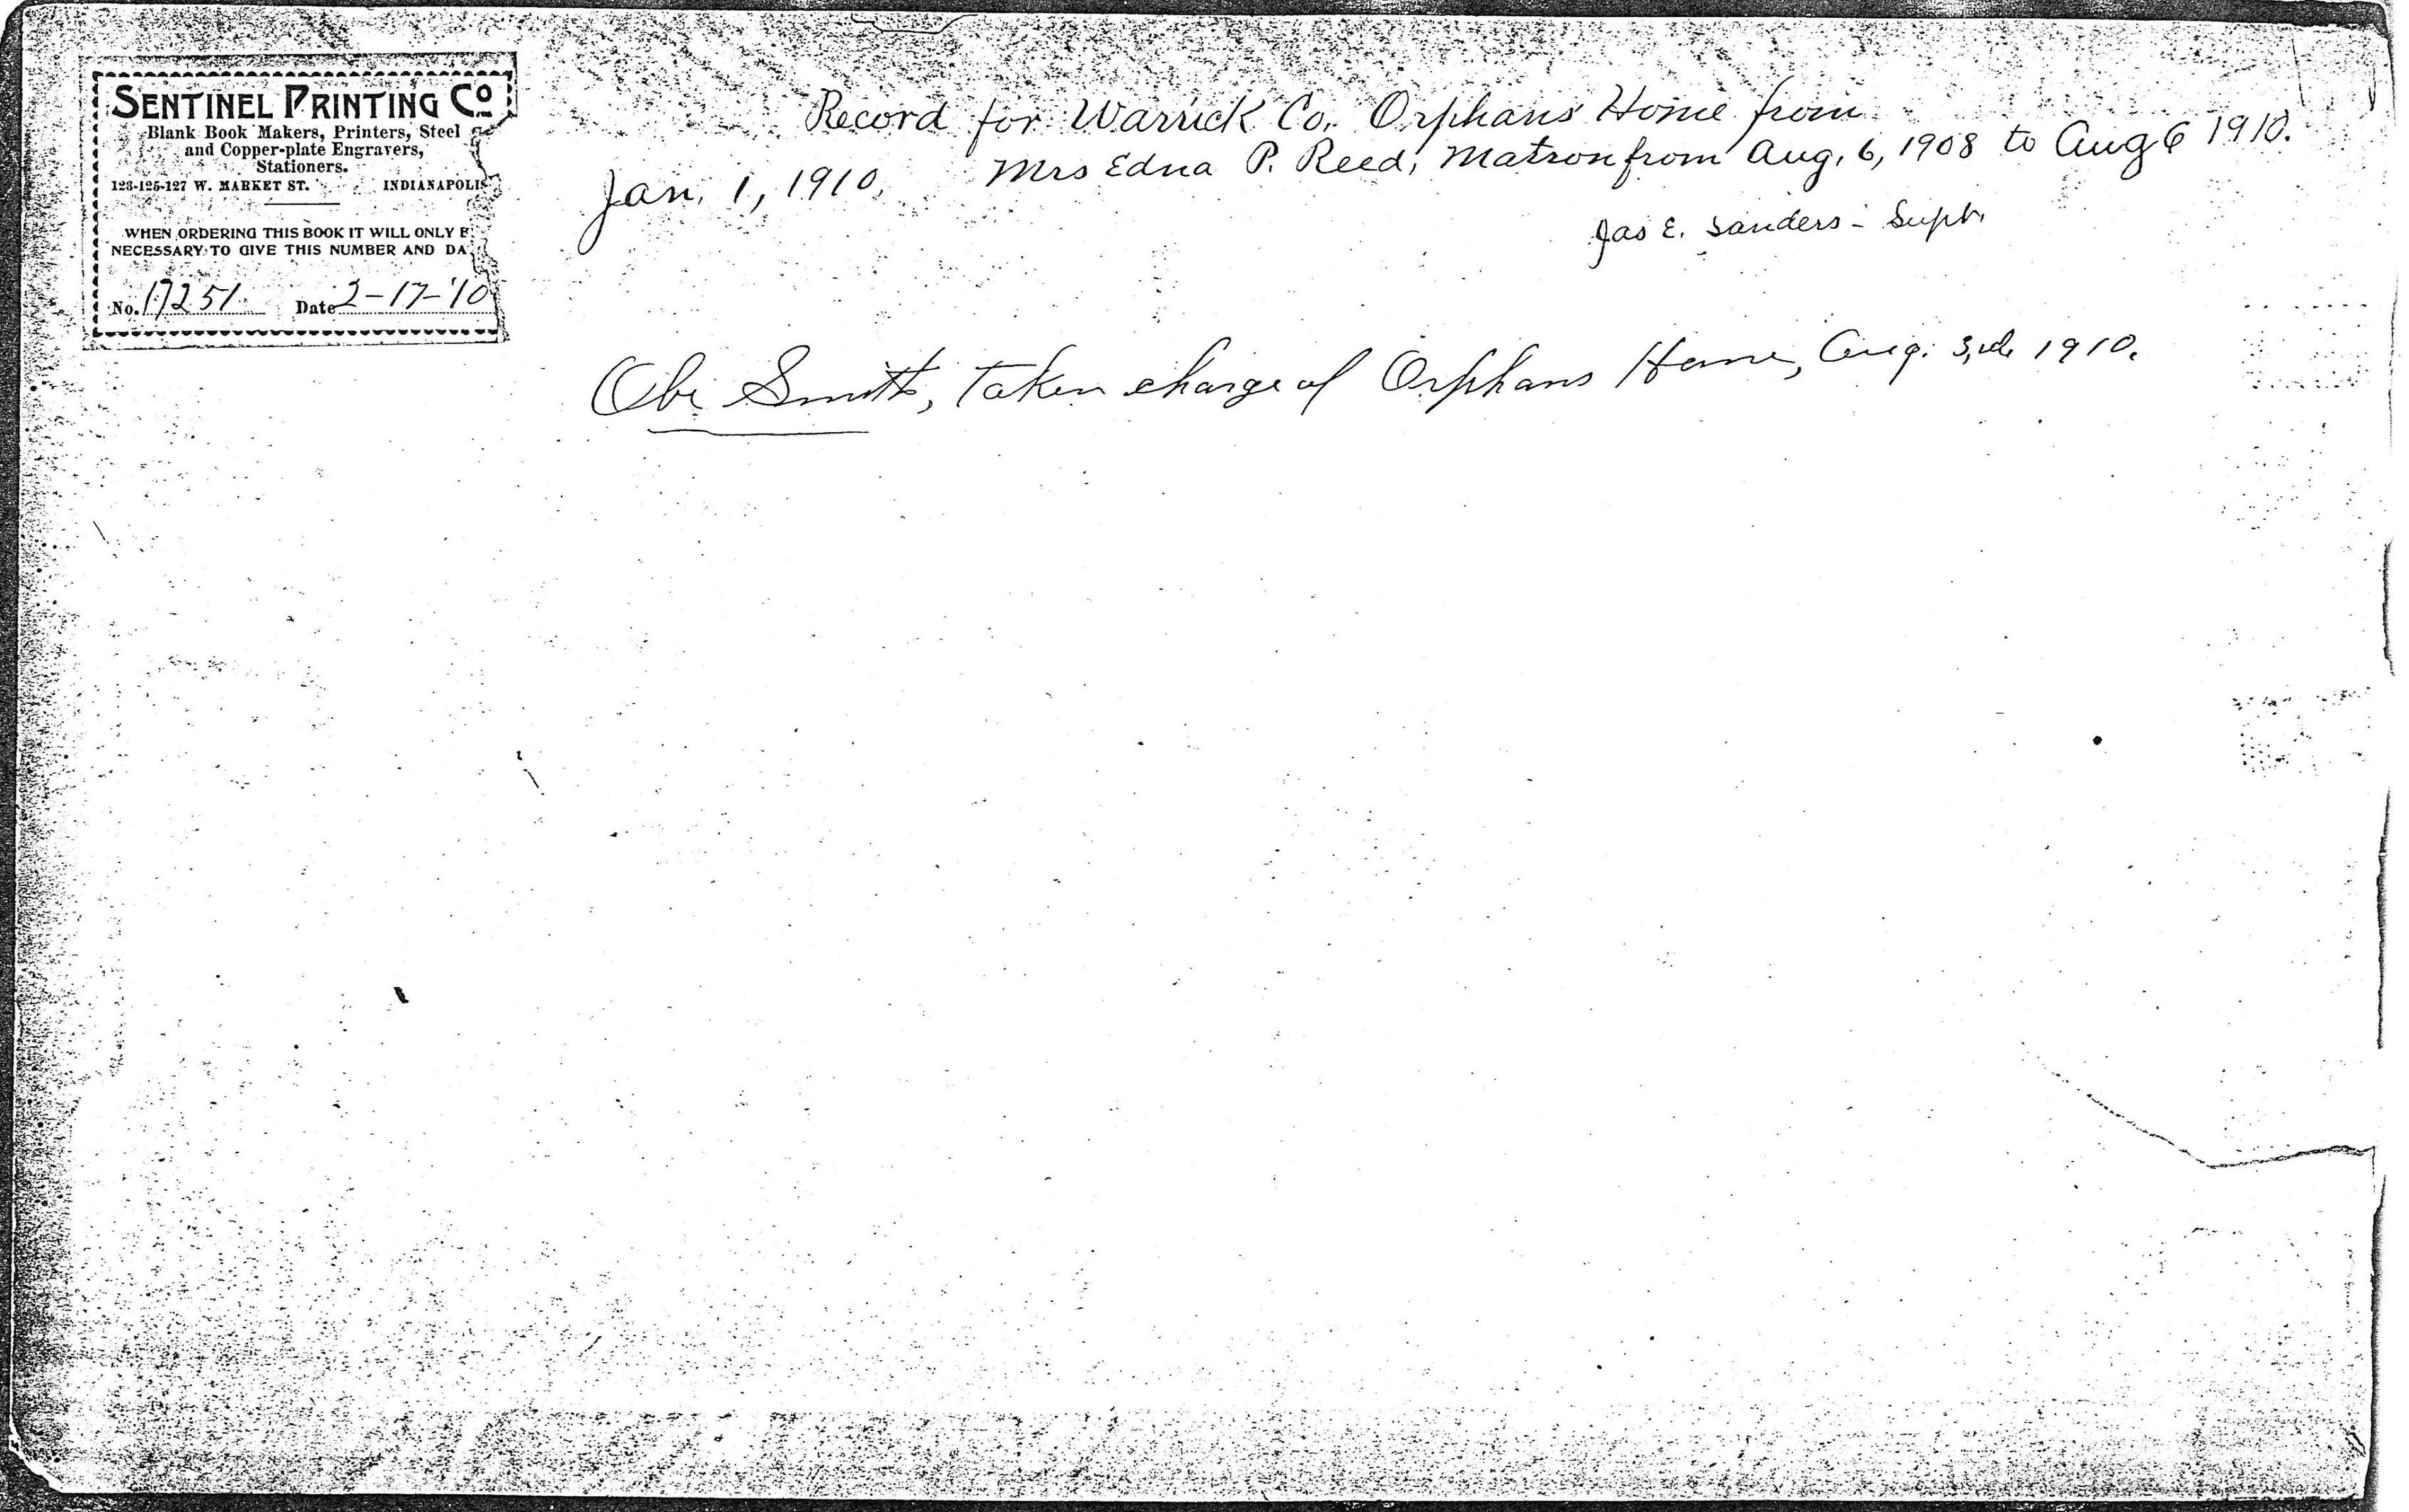 SENTINEL PRINTING Co
Blank Book Makers, Printers, Steel
and Copper-plate Engravers,
Stationers.
123-125-127 W. MARKET ST. INDIANAPOLIS
WHEN ORDERING THIS BOOK IT WILL ONLY B
NECESSARY TO GIVE THIS NUMBER AND DA
No. 17251 Date 2-17-'10
Record for Warrick Co. Orphans' Home from
Jan. 1, 1910. Mrs Edna P. Reed, Matron from Aug. 6, 1908 to Aug 6 1910.
Jas E. Sanders - Supt.
Obe Smith, taken charge of Orphans Home, Aug. 3rd 1910.